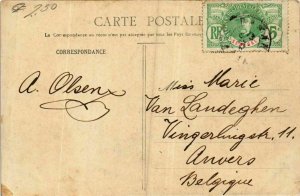 2.50
CARTE POSTALE
La Correspondance au recto n'est pas acceptée par tous les Pays
CORRESPONDANCE
RF
5
A. Olsen
Miss Marie
Van Landeghen
Vingerlingstr. 11
Anvers
Belgique